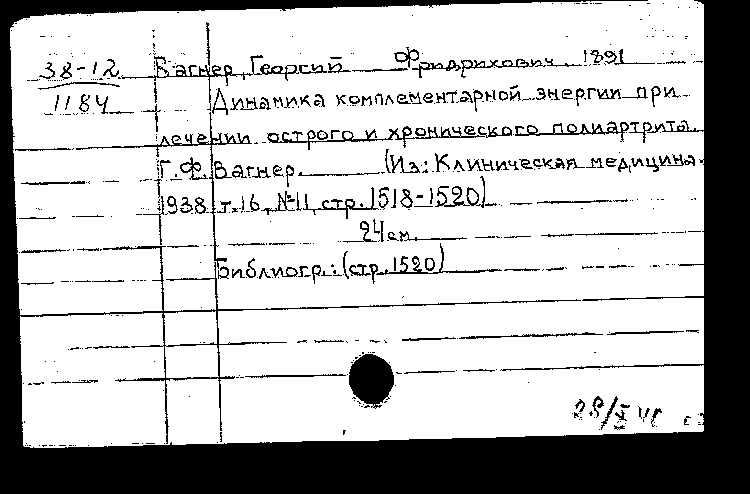 38-12 Вагнер, Георгий Фридрихович. 1891
1184 Динамика комплементарной энергии при
лечении острого и хронического полиартрита.
Г.Ф. Вагнер. (Из: Клиническая медицина.
1938 т.16, №11, стр. 1518-1520)
24 см.
Библиогр.: (стр. 1520)
28/X